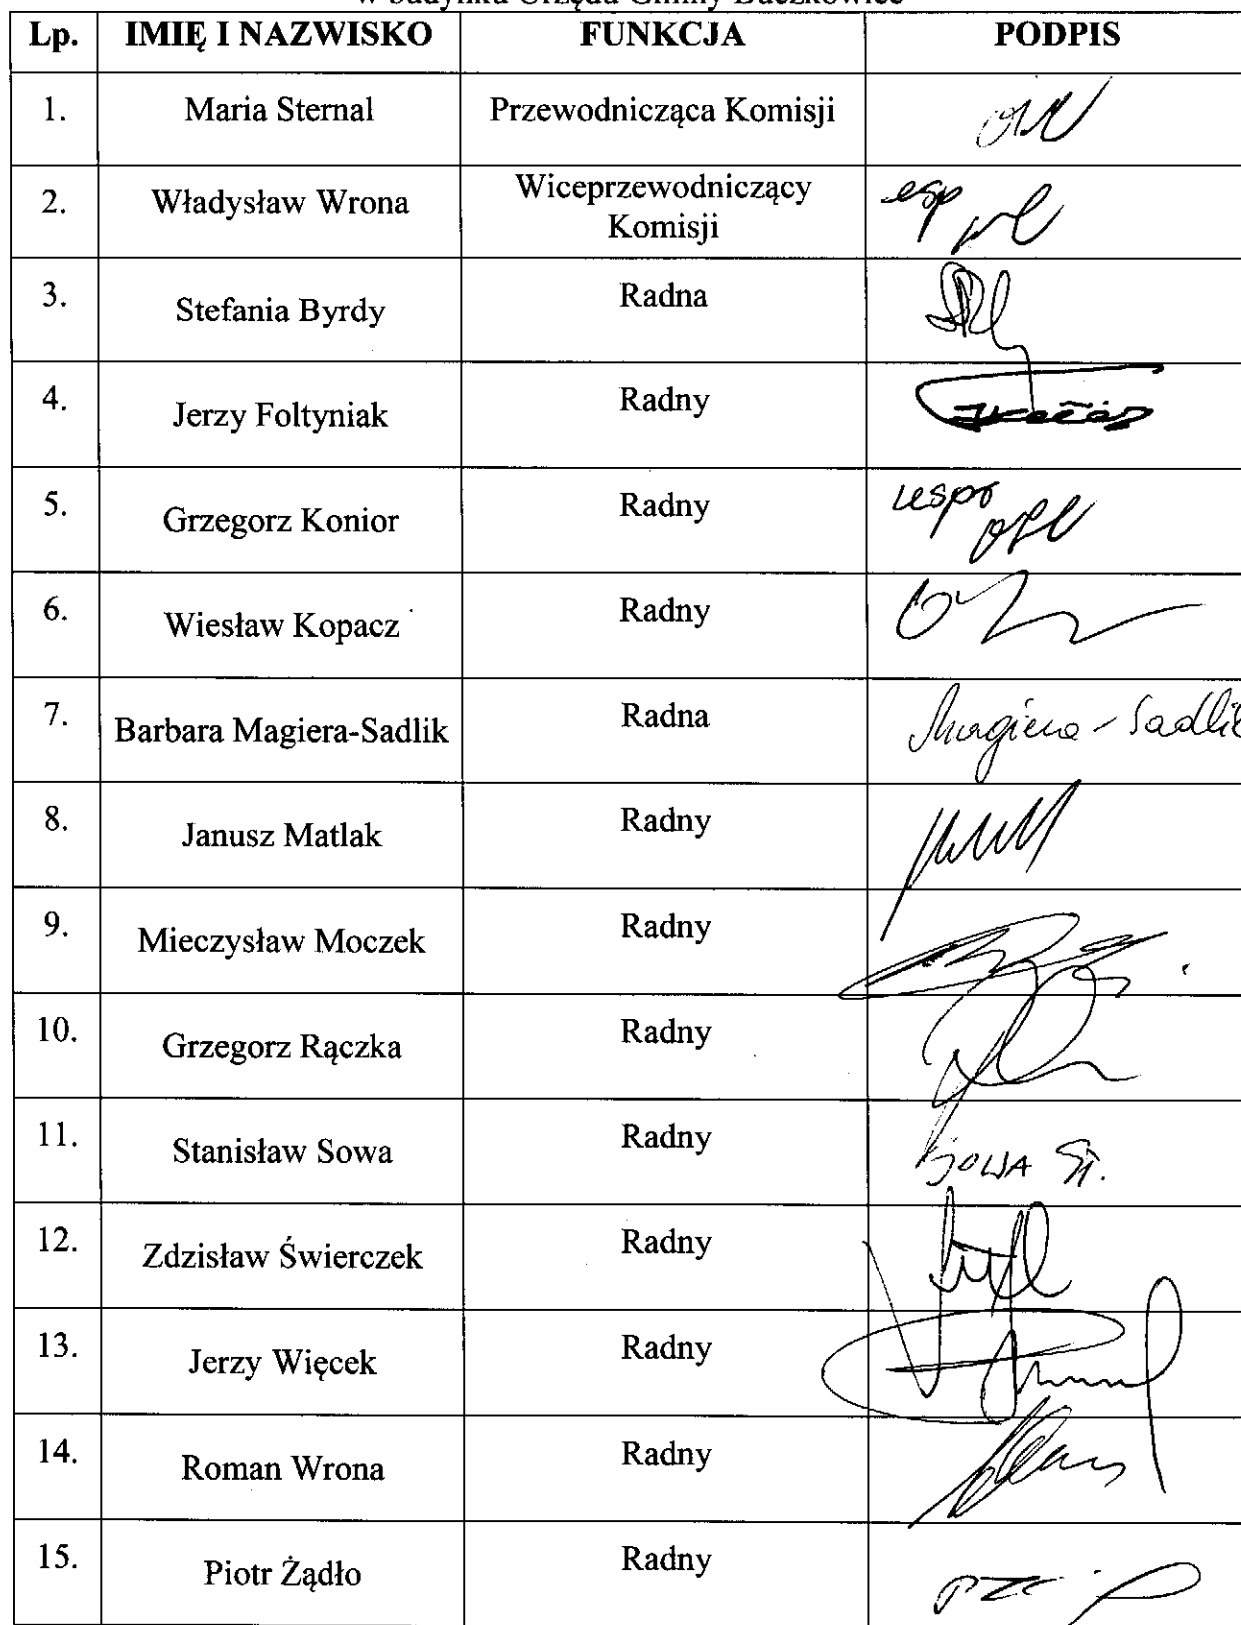 w budynku Urzędu Gminy Buczkowice
Lp. IMIĘ I NAZWISKO FUNKCJA PODPIS
1. Maria Sternal Przewodnicząca Komisji
2. Władysław Wrona Wiceprzewodniczący
Komisji
3. Stefania Byrdy Radna
4. Jerzy Foltyniak Radny
5. Grzegorz Konior Radny
6. Wiesław Kopacz Radny
7. Barbara Magiera-Sadlik Radna Magiera-Sadlik
8. Janusz Matlak Radny
9. Mieczysław Moczek Radny
10. Grzegorz Rączka Radny
11. Stanisław Sowa Radny SOWA St.
12. Zdzisław Świerczek Radny
13. Jerzy Więcek Radny
14. Roman Wrona Radny
15. Piotr Żądło Radny